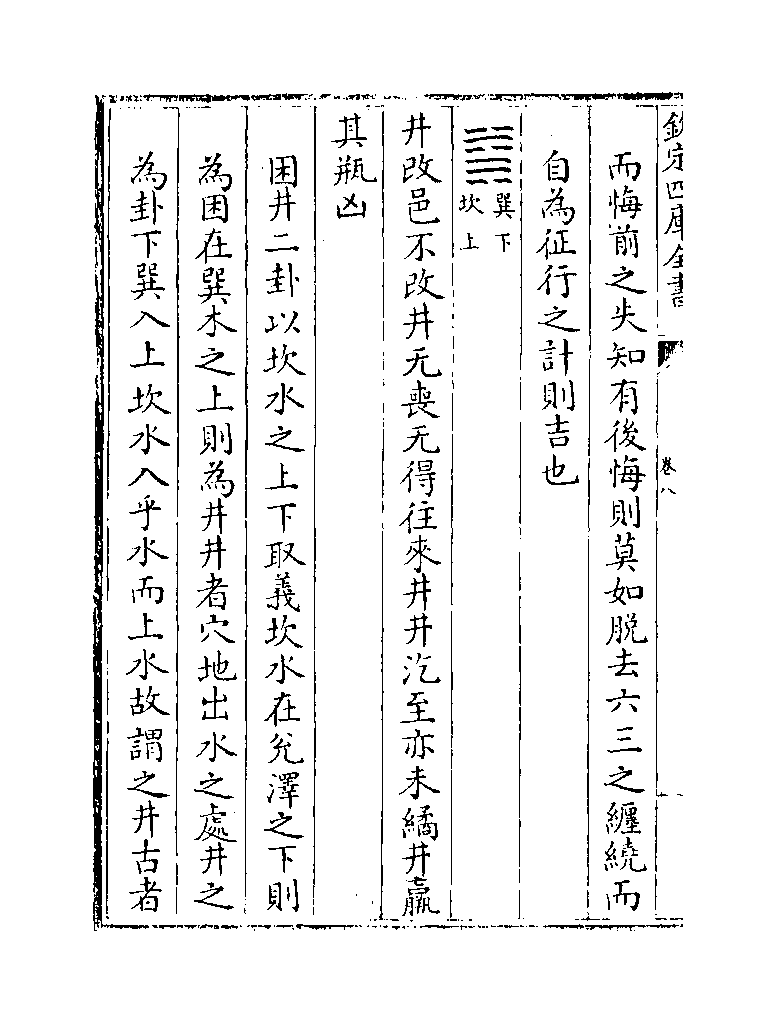 欽定四庫全書
卷八
而悔前之失知有後悔則莫如脱去六三之纏繞而
自為征行之計則吉也
巽下
坎上
井改邑不改井无喪无得往來井井汔至亦未繘井羸
其瓶凶
困井二卦以坎水之上下取義坎水在兊澤之下則
為困在巽木之上則為井井者穴地出水之處井之
為卦下巽入上坎水入乎水而上水故謂之井古者